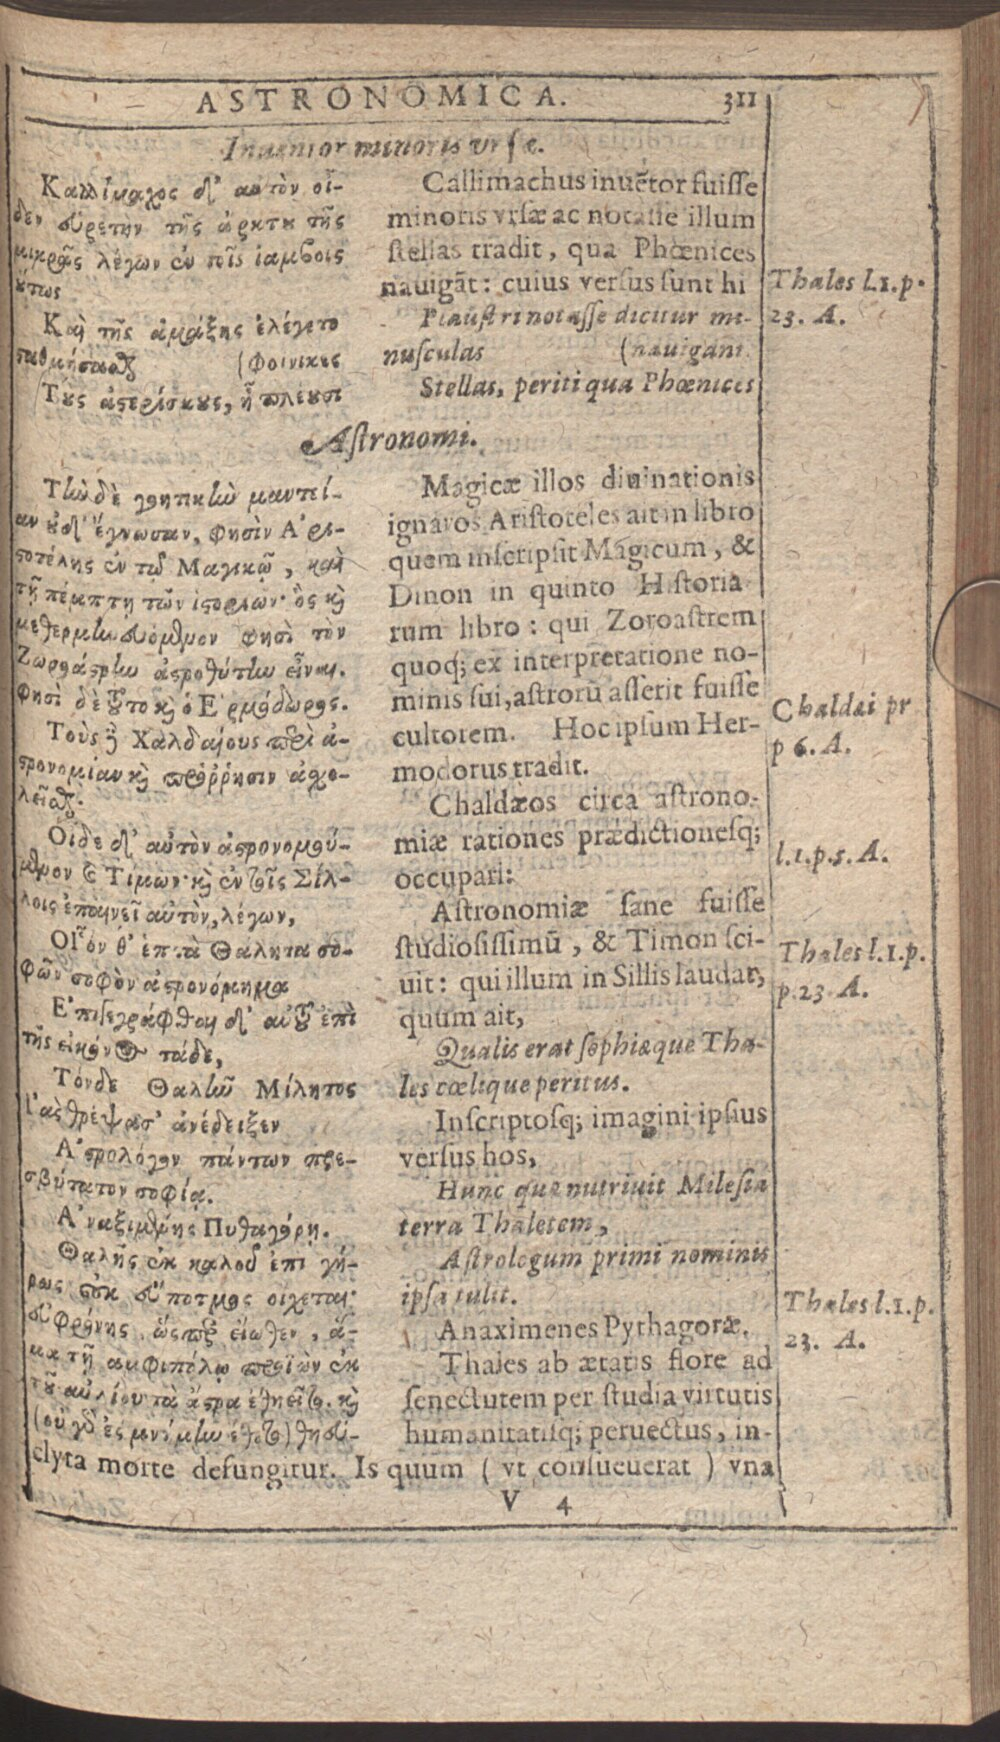 ASTRONOMICA. 311
Inuentor minoris vrsæ.
Καλλίμαχος δ' αὐτὸν οἶ-
δεν εὑρετὴν τῆς ἄρκτου τῆς
μικρᾶς λέγων ἐν τοῖς ἰάμβοις
οὕτως
Καὶ τῆς ἁμάξης ἐλέγετο
σαθμήσασθαι (Φοίνικες
Τοὺς ἀστερίσκους, ᾗ πλέουσι
Callimachus inuẽtor fuisse
minoris vrsæ ac notasse illum
stellas tradit, qua Phœnices
nauigãt: cuius versus sunt hi
Plaustri notasse dicitur mi-
nusculas (nauigant
Stellas, periti qua Phœnices
Thales l.1.p.
23. A.
Astronomi.
Τὴν δὲ γοητικὴν μαντεί-
αν οὐδ' ἔγνωσαν, φησὶν Ἀρι-
στοτέλης ἐν τῷ Μαγικῷ, καὶ
τῇ πέμπτῃ τῶν ἱστοριῶν· ὃς καὶ
μεθερμηνευόμενον φησὶ τὸν
Ζωροάστρην ἀστροθύτην εἶναι.
Φησὶ δὲ τοῦτο καὶ ὁ Ἑρμόδωρος.
Τοὺς δὲ Χαλδαίους περὶ ἀ-
στρονομίαν καὶ πρόρρησιν ἀσχο-
λεῖσθαι·
Οἶδε δ' αὐτὸν ἀστρονομού-
μενον καὶ Τίμων· καὶ ἐν τοῖς Σίλ-
λοις ἐπαινεῖ αὐτὸν, λέγων,
Οἷόν θ' ἑπτὰ Θάλητα σο-
φῶν σοφὸν ἀστρονόμημα
Ἐπιγεγράφθαι δ' αὐτοῦ ἐπὶ
τῆς εἰκόνος τάδε,
Τόνδε Θαλῆν Μίλητος
Ἰὰς θρέψασ' ἀνέδειξεν
Ἀστρολόγον πάντων πρε-
σβύτατον σοφίᾳ.
Ἀναξιμένης Πυθαγόρῃ.
Θαλῆς ἐκ καλοῦ ἐπὶ γή-
ρως οὐκ εὔποτμος οἴχεται·
εὐφρόνης, ὥσπερ εἰώθεν, ἅ-
μα τῇ ἀμφιπόλῳ προϊὼν ἐκ
τοῦ αὐλίου τὰ ἄστρα ἐθηεῖτο. καὶ
Magicæ illos diuinationis
ignaros Aristoteles ait in libro
quem inscripsit Magicum, &
Dinon in quinto Historia
rum libro: qui Zoroastrem
quoq; ex interpretatione no-
minis sui, astrorũ asserit fuisse
cultorem. Hoc ipsum Her-
modorus tradit.
Chaldæos circa astrono-
miæ rationes prædictionesq;
occupari:
Astronomiæ sane fuisse
studiosissimũ, & Timon sci-
uit: qui illum in Sillis laudat,
quum ait,
Qualis erat sophiæque Tha-
les cœlique peritus.
Inscriptosq; imagini ipsius
versus hos,
Hunc quæ nutriuit Milesia
terra Thaletem,
Astrologum primi nominis
ipsa tulit.
Anaximenes Pythagoræ.
Thales ab ætatis flore ad
senectutem per studia virtutis
humanitatisq; peruectus, in-
clyta morte defungitur. Is quum (vt consueuerat) vna
Chaldæi pr
p 6. A.
l.1.p.5. A.
Thales l.1.p.
p.23 A.
Thales l.1.p.
23. A.
V 4